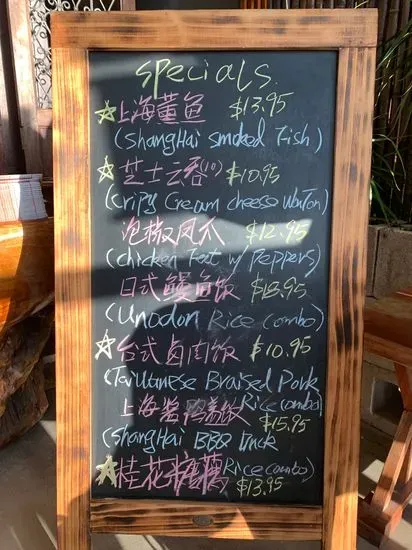 specials
☆上海薰鱼 $13.95
(ShangHai smoked Fish)
☆芝士云吞(10) $10.95
(cripy cream cheese WunTon)
泡椒凤爪 $12.95
(chicken Feet w/ Peppers)
日式鳗鱼饭 $18.95
(Unodon Rice (ombo)
☆台式卤肉饭 $10.95
(Taiwanese Braised Pork
Rice(ombo)
上海酱鸭饭 $15.95
(ShangHai BBQ Duck
Rice(ombo)
☆桂花糖藕 $13.95